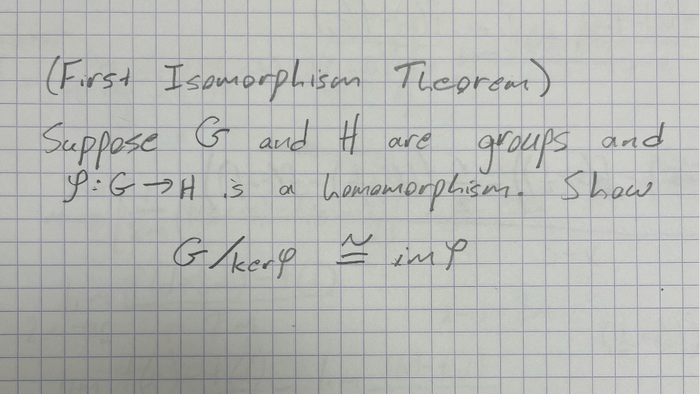 (First Isomorphism Theorem)
Suppose G and H are groups and
φ: G → H is a homomorphism. Show
G/kerφ ≅ imφ